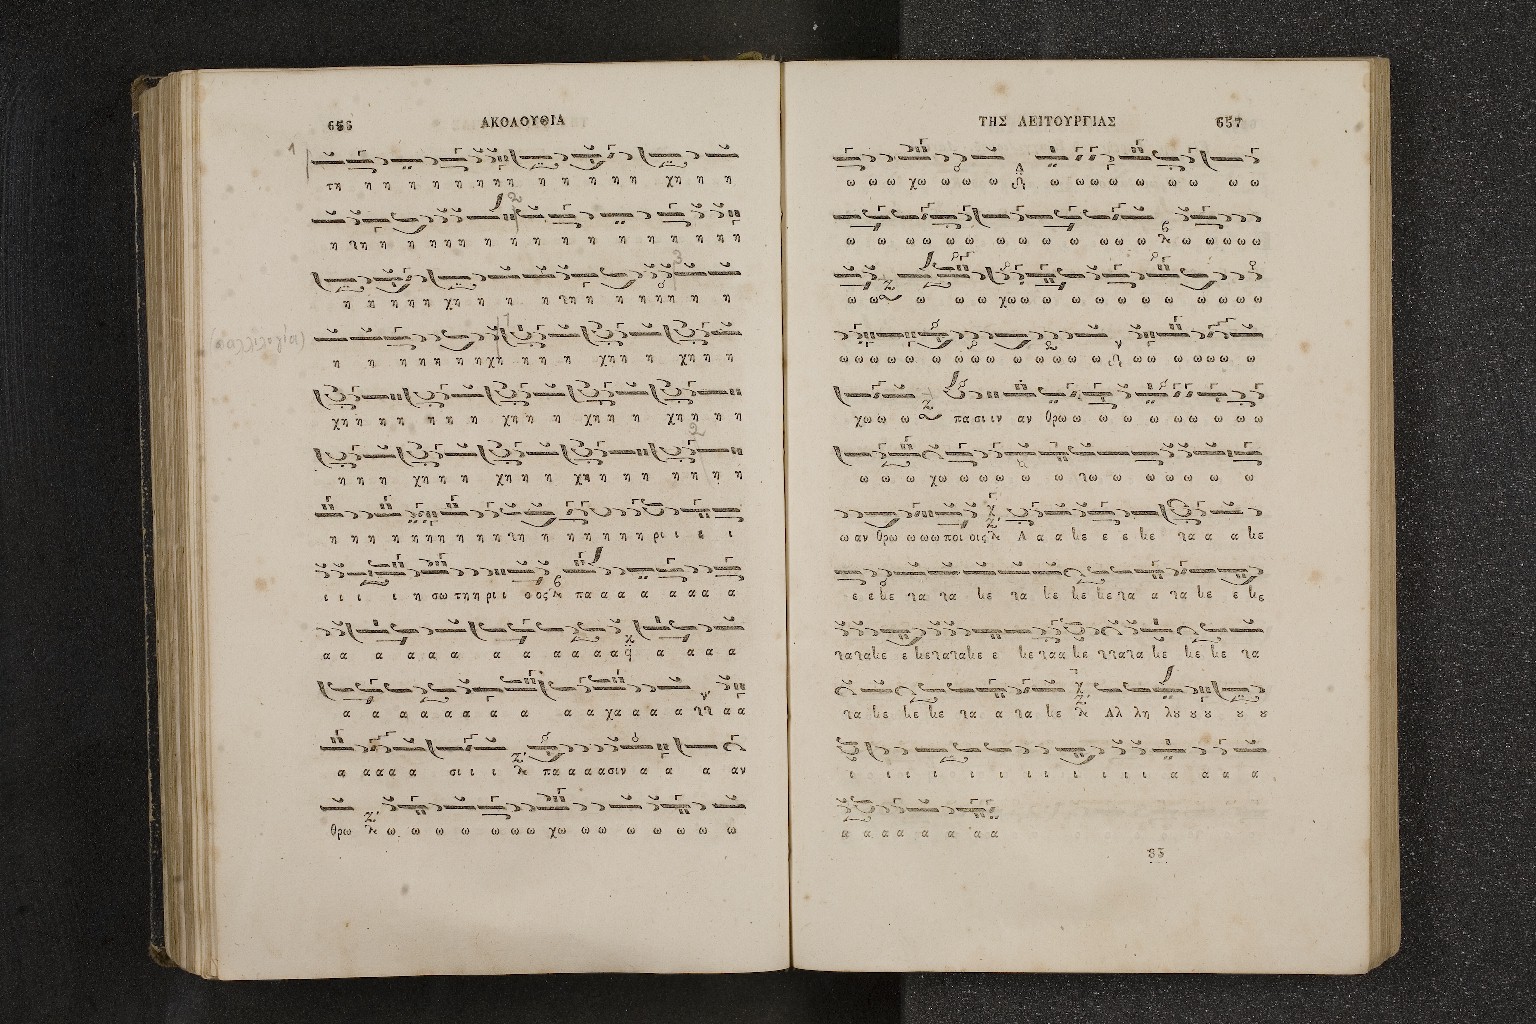 656 ΑΚΟΛΟΥΘΙΑ
τη η η η η η η η η η η η η η χη η η
η τη η η η η η η η η η η η η η η η
η η η η η χη η η η τη η η η η η η η
η η η η η η χη η η η χη η η χη η η η
χη η η η η η η η χη η η η χη η η η
η η η χη η η χη η η χη η η η η η η η
η η η η η η η η η η τη η η η η η η ρι ι ι ι
ι ι ι ι η σω τη η η ρι ι ο ος πα α α α α α α α
α α α α α α α α α α α α α α α α
α α α α α α α α α α χα α α α α α α
α α α α α σι ι ι πα α α α σιν α α α αν
θρω ω ω ω ω ω ω ω ω χω ω ω ω ω ω ω ω
ΤΗΣ ΛΕΙΤΟΥΡΓΙΑΣ 657
ω ω ω χω ω ω ω ω ω ω ω ω ω ω ω ω
ω ω ω ω ω ω ω ω ω ω ω ω ω ω ω ω ω
ω ω ω ω ω χω ω ω ω ω ω ω ω ω ω ω ω
ω ω ω ω ω ω ω ω ω ω ω ω ω ω ω ω ω ω ω ω ω
χω ω ω πα σι ιν αν θρω ω ω ω ω ω ω ω ω
ω ω ω χω ω ω ω ω ω τω ω ω ω ω ω ω
ω αν θρω ω ω ω ποι οις Α α α κε ε ε κε τα α α κε
ε ε κε τα τα κε τα κε κε κε τα α τα κε ε κε
τα τα κε ε κε τα τα κε ε κε τα α κε τα τα κε κε κε τα
τα κε κε κε τα α τα κε Αλ λη λου ου ου ου ου
ι ι ι ι ι ι ι ι ι ι ι ι α α α α
α α α α α α α α
83